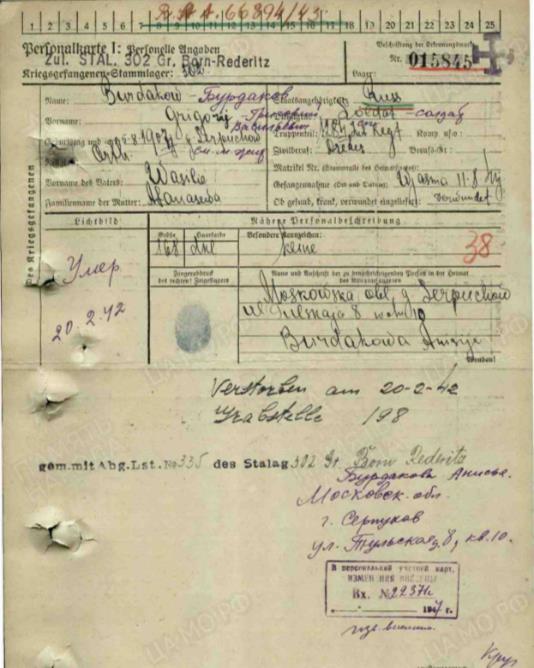 R.A.A. 66394/43
1 2 3 4 5 6 7 8 9 10 11 12 13 14 15 16 17 18 19 20 21 22 23 24 25
Personalkarte I: Personelle Angaben
Beschriftung der Erkennungsmarke
Zul. STAL. 302 Gr. Born-Rederitz
Nr. 015845
Kriegsgefangenen-Stammlager: 302
Lager:
Des Kriegsgefangenen
Name: Burdakow - Бурдаков
Staatsangehörigkeit: Russ
Vorname: Grigorij
Dienstgrad: Soldat - солдат
Васильевич
Komp. usw.:
Serpuchow
Zivilberuf: Dreher Berufs-Gr.:
Matrikel Nr.
Vorname des Vaters: Wasili
Gefangennahme (Ort und Datum): Wjasma 11.8.
Familienname der Mutter:
Ob gesund, krank, verwundet eingeliefert: verwundet
Lichtbild
Nähere Personalbeschreibung
Größe
Haarfarbe
Besondere Kennzeichen:
168
keine
38
Умер
20.2.42
Fingerabdruck
des rechten Zeigefingers
Name und Anschrift der zu benachrichtigenden Person in der Heimat
des Kriegsgefangenen
Moskowska obl. g. Serpuchow
ul. Tulskaja 8
Burdakowa Anisja
Wenden!
Verstorben am 20-2-42
Grabstelle 198
gem. mit Abg. Lst. № 335 des Stalag 302 Gr. Born Rederitz
Бурдакова Анисья.
Московск. обл.
г. Серпухов
ул. Тульская, 8, кв. 10.
В персональный учетной карт.
ИЗМЕНЕНИЯ ВНЕСЕНЫ
Вх. №
194 г.
ЦАМО РФ